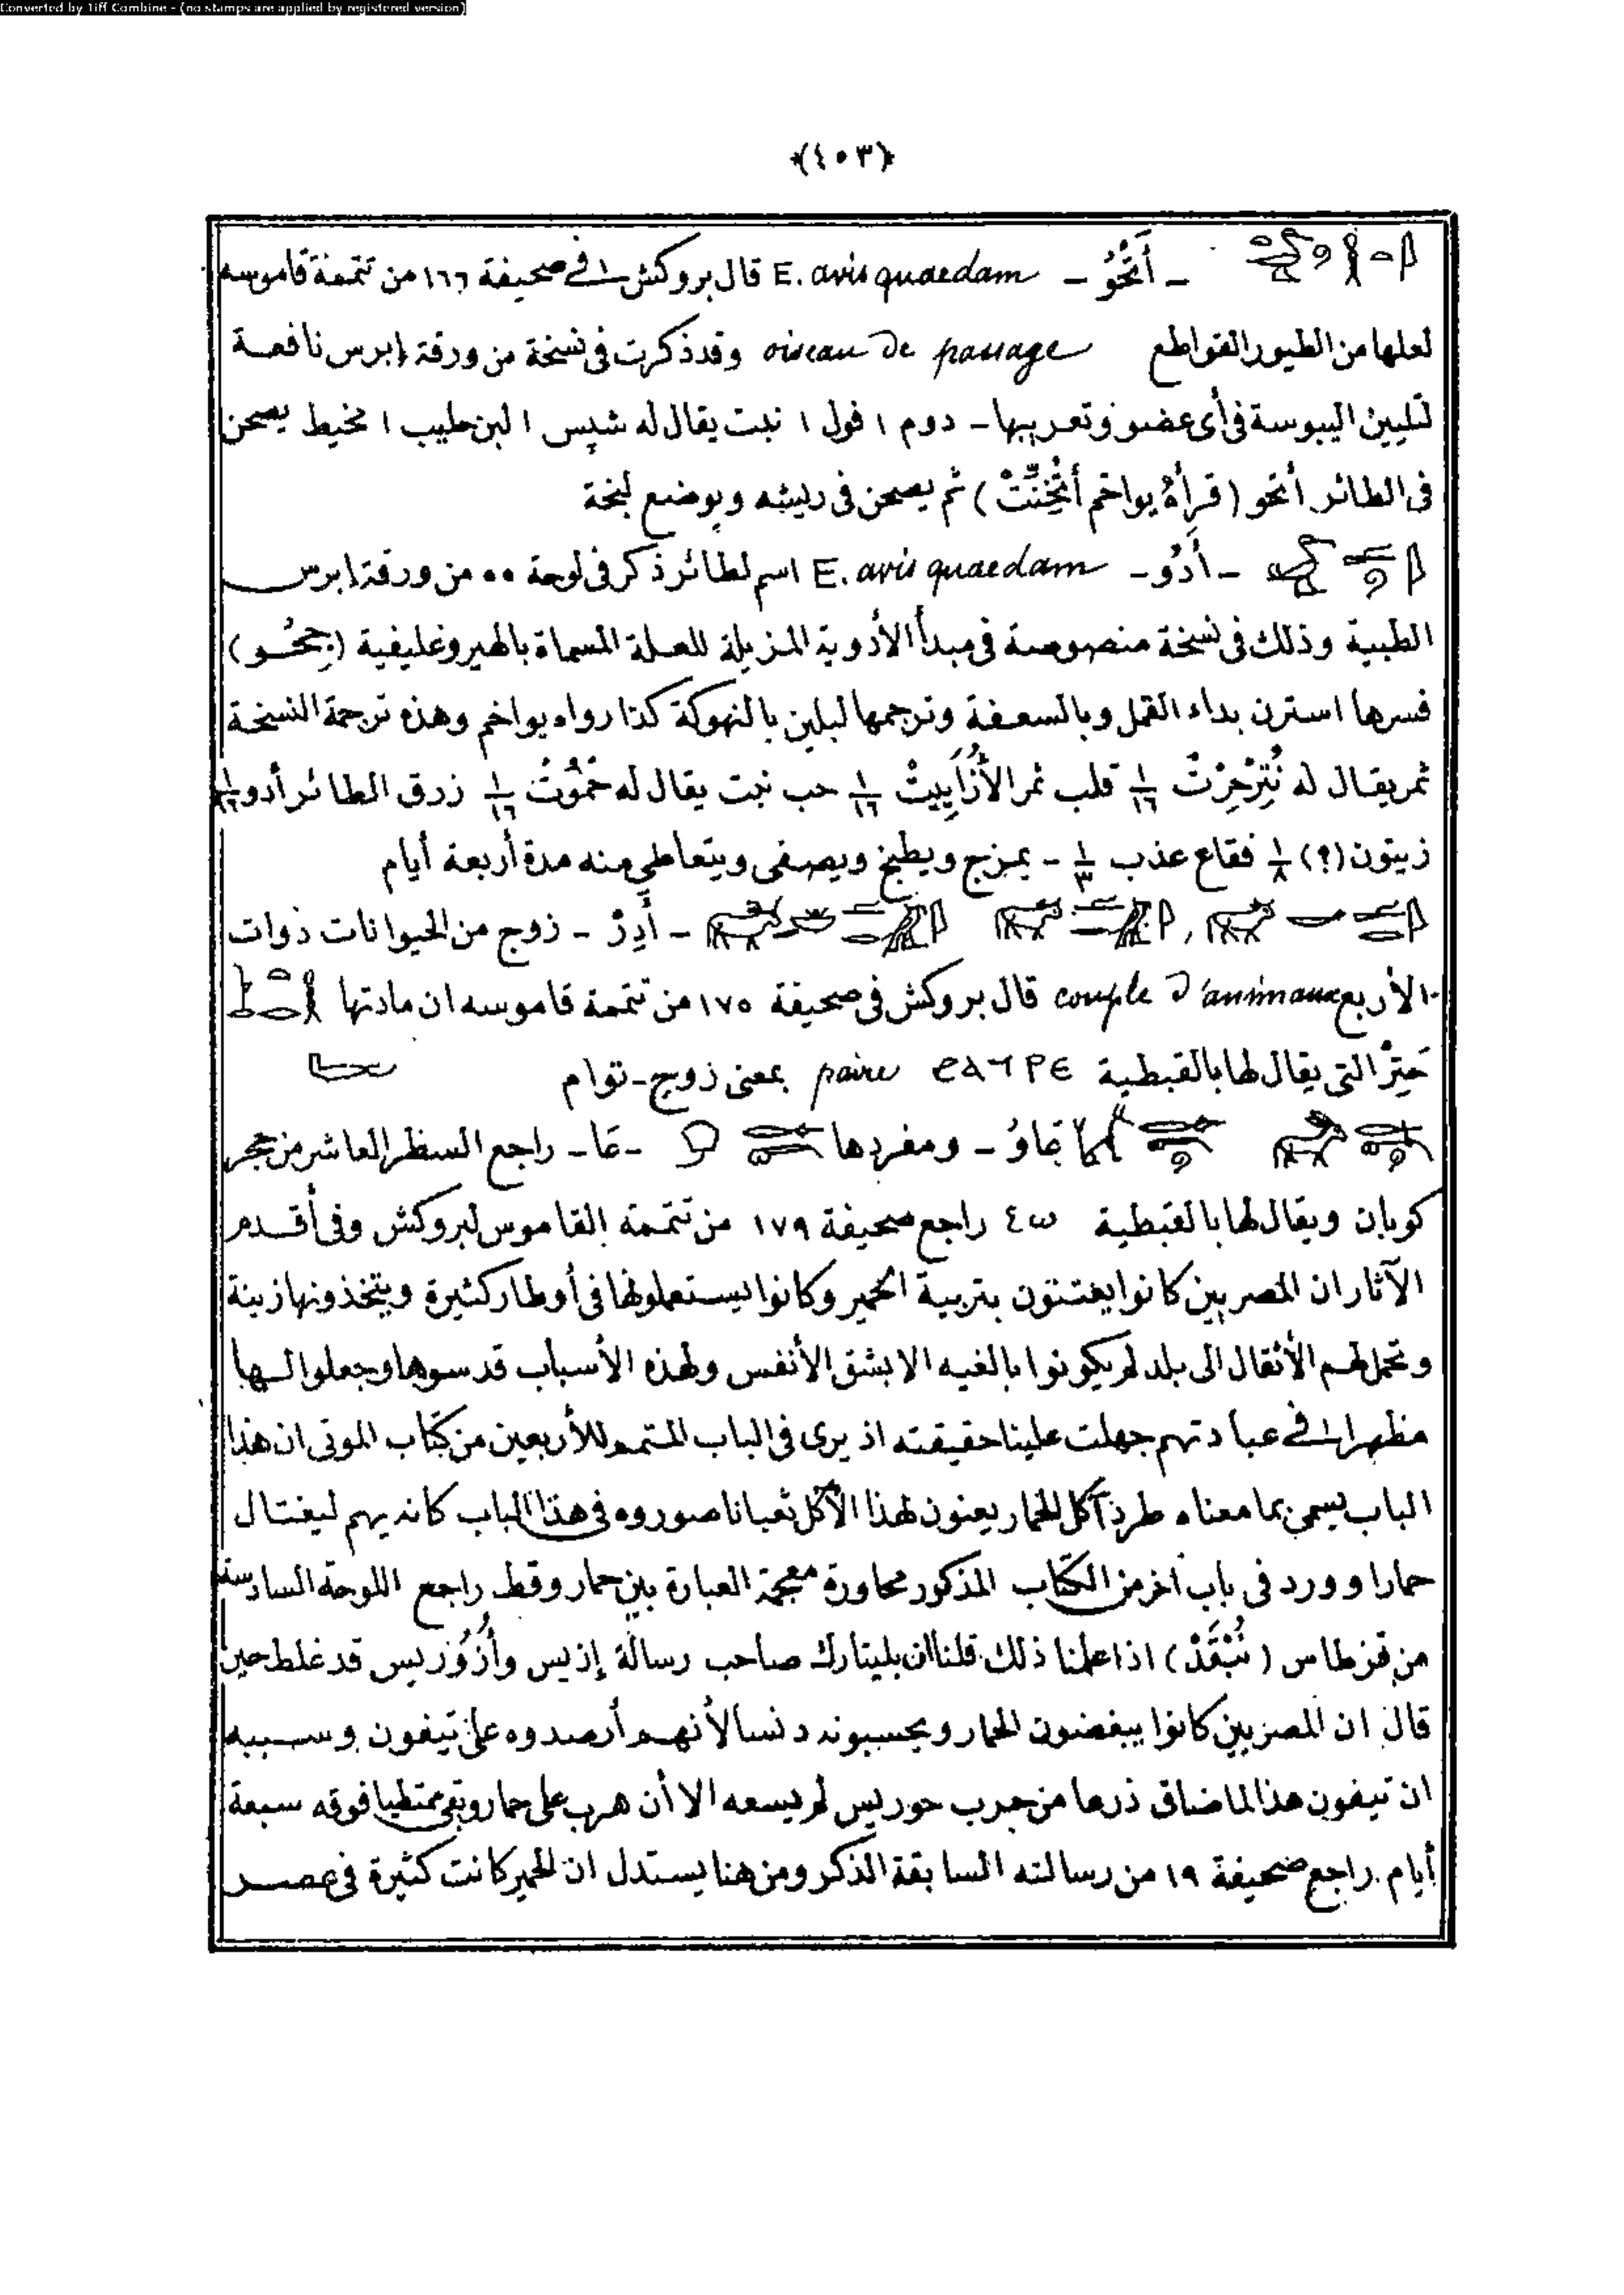 Converted by Tiff Combine - (no stamps are applied by registered version)
﴿٤٠٣﴾
ـ أَتْحُو ـ E. avis quaedam قال بروكش فى صحيفة ١٦٦ من تتمة قاموسه
لعلها من الطيور القواطع oiseau de passage وقد ذكرت فى نسخة من ورقة إبرس نافعة
لتليين اليبوسة فى أى عضو وتعريبها ـ دوم ١ فول ١ نبت يقال له شپس ١ لبن حليب ١ مخيط يصحن
فى الطائر أتحو (قرأه يواخم) ثم يصحن فى ريشه ويوضع لبخة
ـ أَدُو ـ E. avis quaedam اسم لطائر ذكر فى لوحة ٥٠ من ورقة إبرس
الطبية وذلك فى نسخة منصوصة فى مبدأ الأدوية المزيلة للعلة المسماة بالهيروغليفية
فسرها استرن بداء القمل وبالسعفة وترجمها لبلين بالنهوكة كذا رواه يواخم وهذه ترجمة النسخة
ثمر يقال له ١/١٦ قلب ثمر ١/١٦ حب نبت يقال له ١/١٦ زرق الطائر أدو ١/١٦
زيتون (؟) ١/٨ فقاع عذب ١/٣ ـ يمزج ويطبخ ويصفى ويتعاطى منه مدة أربعة أيام
ـ أَدِرْ ـ زوج من الحيوانات ذوات
الأربع couple d'animaux قال بروكش فى صحيفة ١٧٥ من تتمة قاموسه ان مادتها
حَتِرْ التى يقال لها بالقبطية ϩⲁⲧⲣⲉ paire بمعنى زوج ـ توام
ـ ومفردها ـ عَا ـ راجع السطر العاشر من حجر
كوبان ويقال لها بالقبطية راجع صحيفة ١٧٩ من تتمة القاموس لبروكش وفى أقدم
الآثار ان المصريين كانوا يعتنون بتربية الحمير وكانوا يستعملونها فى أوطار كثيرة ويتخذونها زينة
وتحمل لهم الأثقال الى بلد لم يكونوا بالغيه الا بشق الأنفس ولهذه الأسباب قدسوها وجعلوا لها
مظهرا فى عبادتهم جهلت علينا حقيقته اذ يرى فى الباب المتمم للأربعين من كتاب الموتى ان هذا
الباب يسمى بما معناه طرد آكل الحمار يعنون لهذا الآكل ثعبانا صوروه فى هذا الباب كانه يهم ليغتال
حمارا وورد فى باب آخر من الكتاب المذكور محاورة معجمة العبارة بين حمار وقط راجع اللوحة السادسة
من قرطاس اذا علمنا ذلك قلنا ان بليتارك صاحب رسالة إزيس وأزوريس قد غلط حين
قال ان المصريين كانوا يبغضون الحمار ويحسبونه دنسا لأنهم أرصدوه على تيفون وسببه
ان تيفون هذا لما ضاق ذرعا من حرب حوريس لم يسعه الا أن هرب على حمار وبقى ممتطيا فوقه سبعة
أيام. راجع صحيفة ١٩ من رسالته السابقة الذكر ومن هنا يستدل ان الحمير كانت كثيرة فى مصر